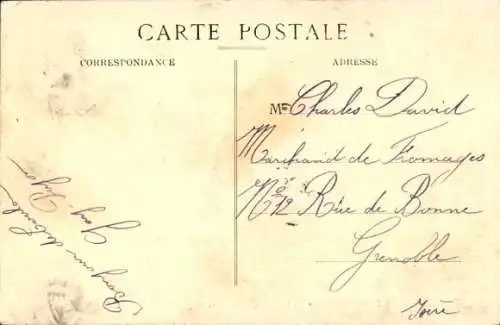 CARTE POSTALE
CORRESPONDANCE
ADRESSE
Mr Charles David
Marchand de Fromages
No 12 Rue de Bonne
Grenoble
Isère
Bonjour de
Gay